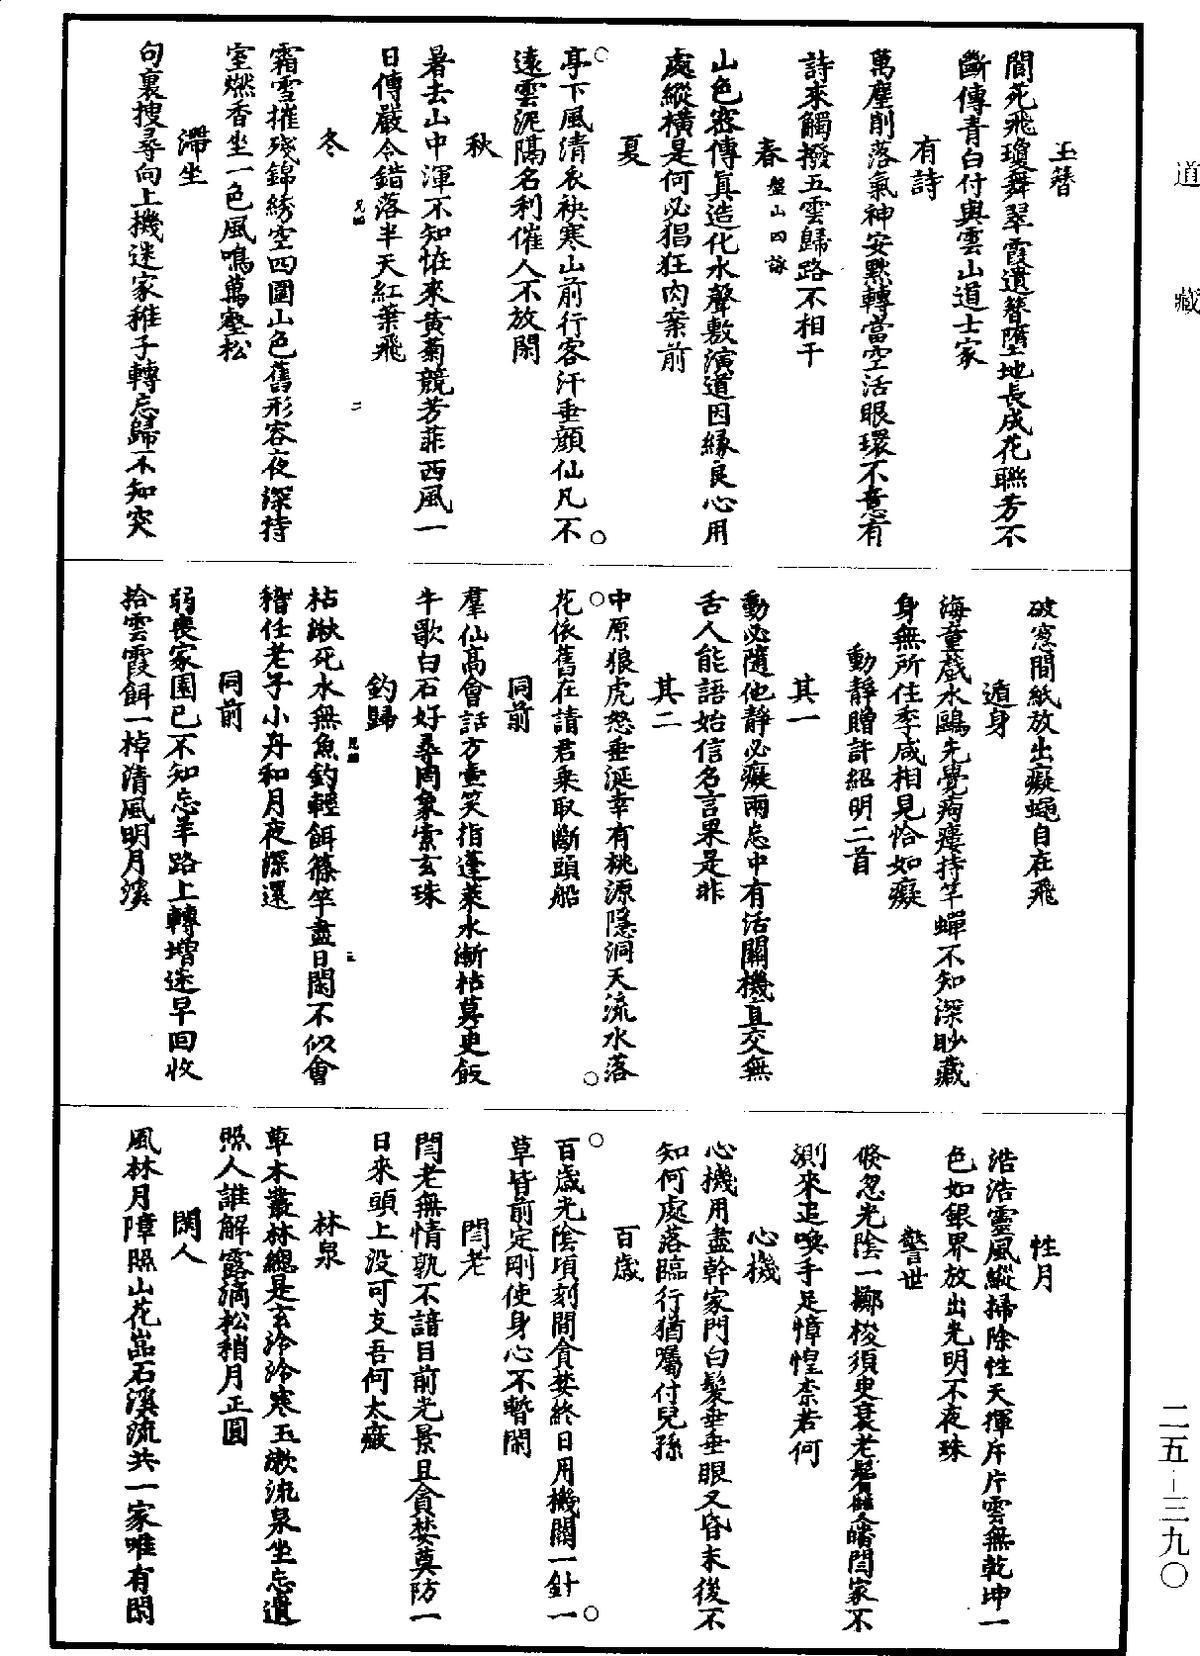 道藏
玉簪
閬苑飛瓊舞翠霞遺簪墮地長成花聯芳不
斷傳青白付與雲山道士家
有詩
萬塵削落氣神安默轉當空活眼環不意有
詩來觸撥五雲歸路不相干
春 盤山四詠
山色密傳真造化水聲敷演道因緣良心用
處縱橫是何必猖狂肉案前
夏
亭下風清衣袂寒山前行客汗垂顏仙凡不
遠雲泥隔名利催人不放閑
秋
暑去山中渾不知恠來黃菊競芳菲西風一
日傳嚴令錯落半天紅葉飛
冬
霜雪摧殘錦綉空四圍山色舊形容夜深持
室燃香坐一色風鳴萬壑松
滯坐
句裏搜尋向上機迷家稚子轉忘歸不知突
兄四
二
破窓間紙放出癡蠅自在飛
遁身
海童戲水鷗先覺痀瘻持竿蟬不知深眇藏
身無所住季咸相見恰如癡
動靜贈許紹明二首
其一
動必隨他靜必癡兩忘中有活關機直交無
舌人能語始信名言果是非
其二
中原狼虎怒垂涎幸有桃源隱洞天流水落
花依舊在請君乘取斷頭船
同前
羣仙高會話方壺笑指蓬萊水漸枯莫更飯
牛歌白石好尋罔象索玄珠
釣歸
枯湫死水無魚釣輕餌篠竿盡日閑不似會
稽任老子小舟和月夜深還
同前
弱喪家園已不知忘羊路上轉增迷早回收
拾雲霞餌一棹清風明月溪
三
性月
浩浩靈風縱掃除性天揮斥片雲無乾坤一
色如銀界放出光明不夜珠
警世
倏忽光陰一擲梭須臾衰老鬢皤閻家不
測來追喚手足慞惶柰若何
心機
心機用盡幹家門白髮垂垂眼又昏末後不
知何處落臨行猶囑付兒孫
百歲
百歲光陰頃刻間貪婪終日用機關一針一
草皆前定剛使身心不暫閑
閻老
閻老無情孰不諳目前光景且貪婪莫防一
日來頭上没可支吾何太憨
林泉
草木叢林總是玄泠泠寒玉漱流泉坐忘遺
照人誰解露滴松稍月正圓
閑人
風林月障照山花出石溪流共一家唯有閑
二五—三九〇